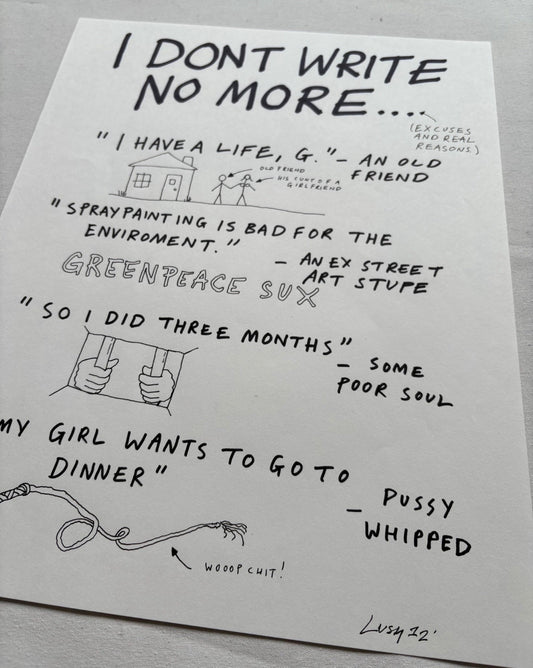 I DONT WRITE
NO MORE....
(EXCUSES
AND REAL
REASONS.)
"I HAVE A LIFE, G." – AN OLD
FRIEND
OLD FRIEND
HIS CUNT OF A
GIRLFRIEND
"SPRAYPAINTING IS BAD FOR THE
ENVIROMENT."
– AN EX STREET
ART STUPE
GREENPEACE SUX
"SO I DID THREE MONTHS"
– SOME
POOR SOUL
MY GIRL WANTS TO GO TO
DINNER"
– PUSSY
WHIPPED
WOOOPCHIT!
Lush 12'